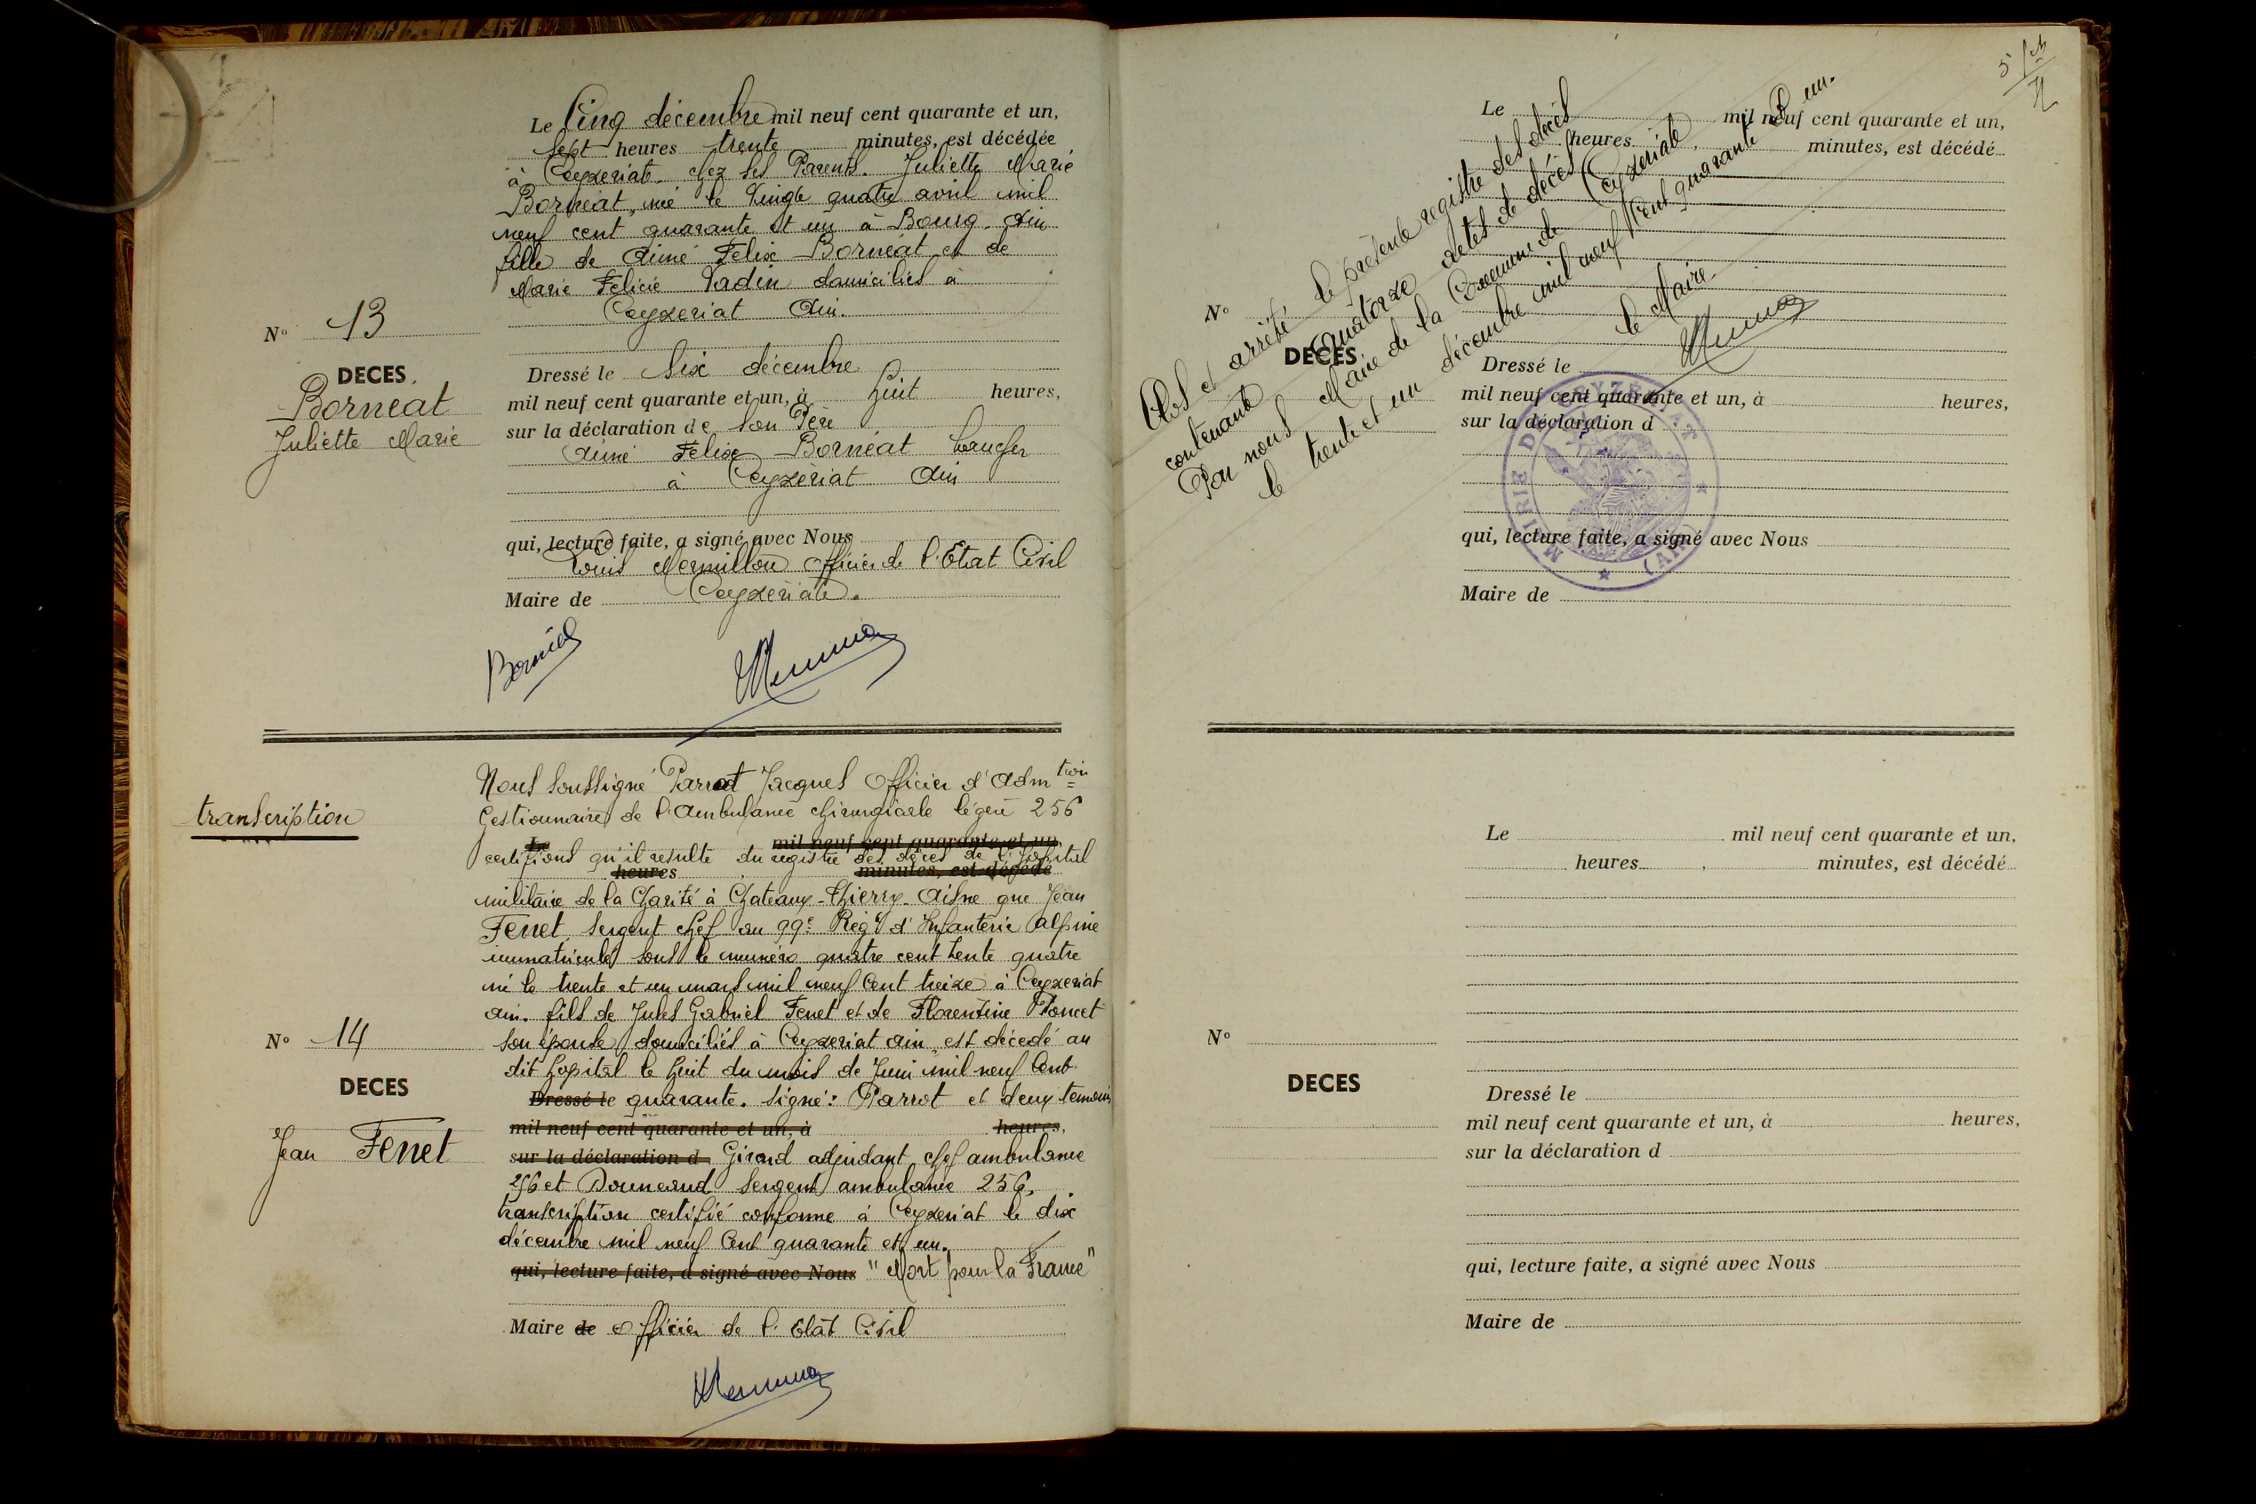 Le Cinq décembre mil neuf cent quarante et un,
Sept heures trente minutes, est décédée
à Ceyzeriat. chez ses Parents. Juliette Marie
Bornéat, née le Vingt quatre avril mil
neuf cent quarante et un à Bourg. Ain
fille de Aimé Felix Bornéat et de
Marie Felicie Vadin domiciliés à
Ceyzeriat Ain.
N° 13
DECES
Borneat
Juliette Marie
Dressé le Six décembre
mil neuf cent quarante et un, à huit heures,
sur la déclaration de son Père
Aimé Felix Bornéat
à Ceyzériat Ain
qui, lecture faite, a signé avec Nous
Louis Mermillon officier de l'Etat Civil
Maire de Ceyzeriat.
transcription
Nous soussigné Parrot Jacques Officier d'Adm tion
Gestionnaire de l'Ambulance chirurgicale légère 256
Le mil neuf cent quarante et un,
certifions qu'il résulte du registre des décès de l'Hopital
heures minutes, est décédé
militaire de la Charité à Chateaux-Thierry. Aisne que Jean
Fenet Sergent chef au 99e Regt d'Infanterie alpine
immatriculé sous le numéro quatre cent trente quatre
né le trente et un mars mil neuf cent treize à Ceyzeriat
ain. fils de Jules Gabriel Fenet et de Florentine Poncet
son épouse domiciliés à Ceyzeriat ain, est décédé au
dit hopital le huit du mois de Juin mil neuf cent
N° 14
DECES
Jean Fenet
Dressé le quarante. Signé: Parrot et deux temoins
mil neuf cent quarante et un, à heures,
sur la déclaration d Girond adjudant chef ambulance
256 et Sergent ambulance 256,
transcription certifié conforme à Ceyzeriat le dix
décembre mil neuf cent quarante et un.
qui, lecture faite, a signé avec Nous "Mort pour la France"
Maire de officier de l'Etat Civil
Le mil neuf cent quarante et un,
heures minutes, est décédé
Clos et arrêté le présente registre des décès
contenant Quatorze actes de décès
Par nous Maire de la Commune de Ceyzeriat
le trente et un décembre mil neuf cent quarante & un.
le Maire
N°
DECES
Dressé le
mil neuf cent quarante et un, à heures,
sur la déclaration d
MAIRIE DE CEYZÉRIAT (AIN)
qui, lecture faite, a signé avec Nous
Maire de
Le mil neuf cent quarante et un,
heures minutes, est décédé
N°
DECES
Dressé le
mil neuf cent quarante et un, à heures,
sur la déclaration d
qui, lecture faite, a signé avec Nous
Maire de